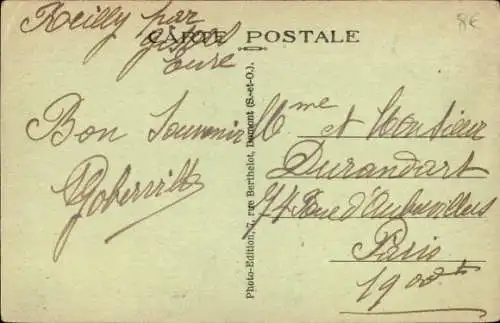 Reuilly par
Gisors
Eure
CARTE POSTALE
8€
Bon Souvenir
Goberville
Photo-Edition, 7, rue Berthelot, Domont (S.-et-O.).
Mme et Monsieur
Durandart
74 Rue d'Aubervilliers
Paris
19